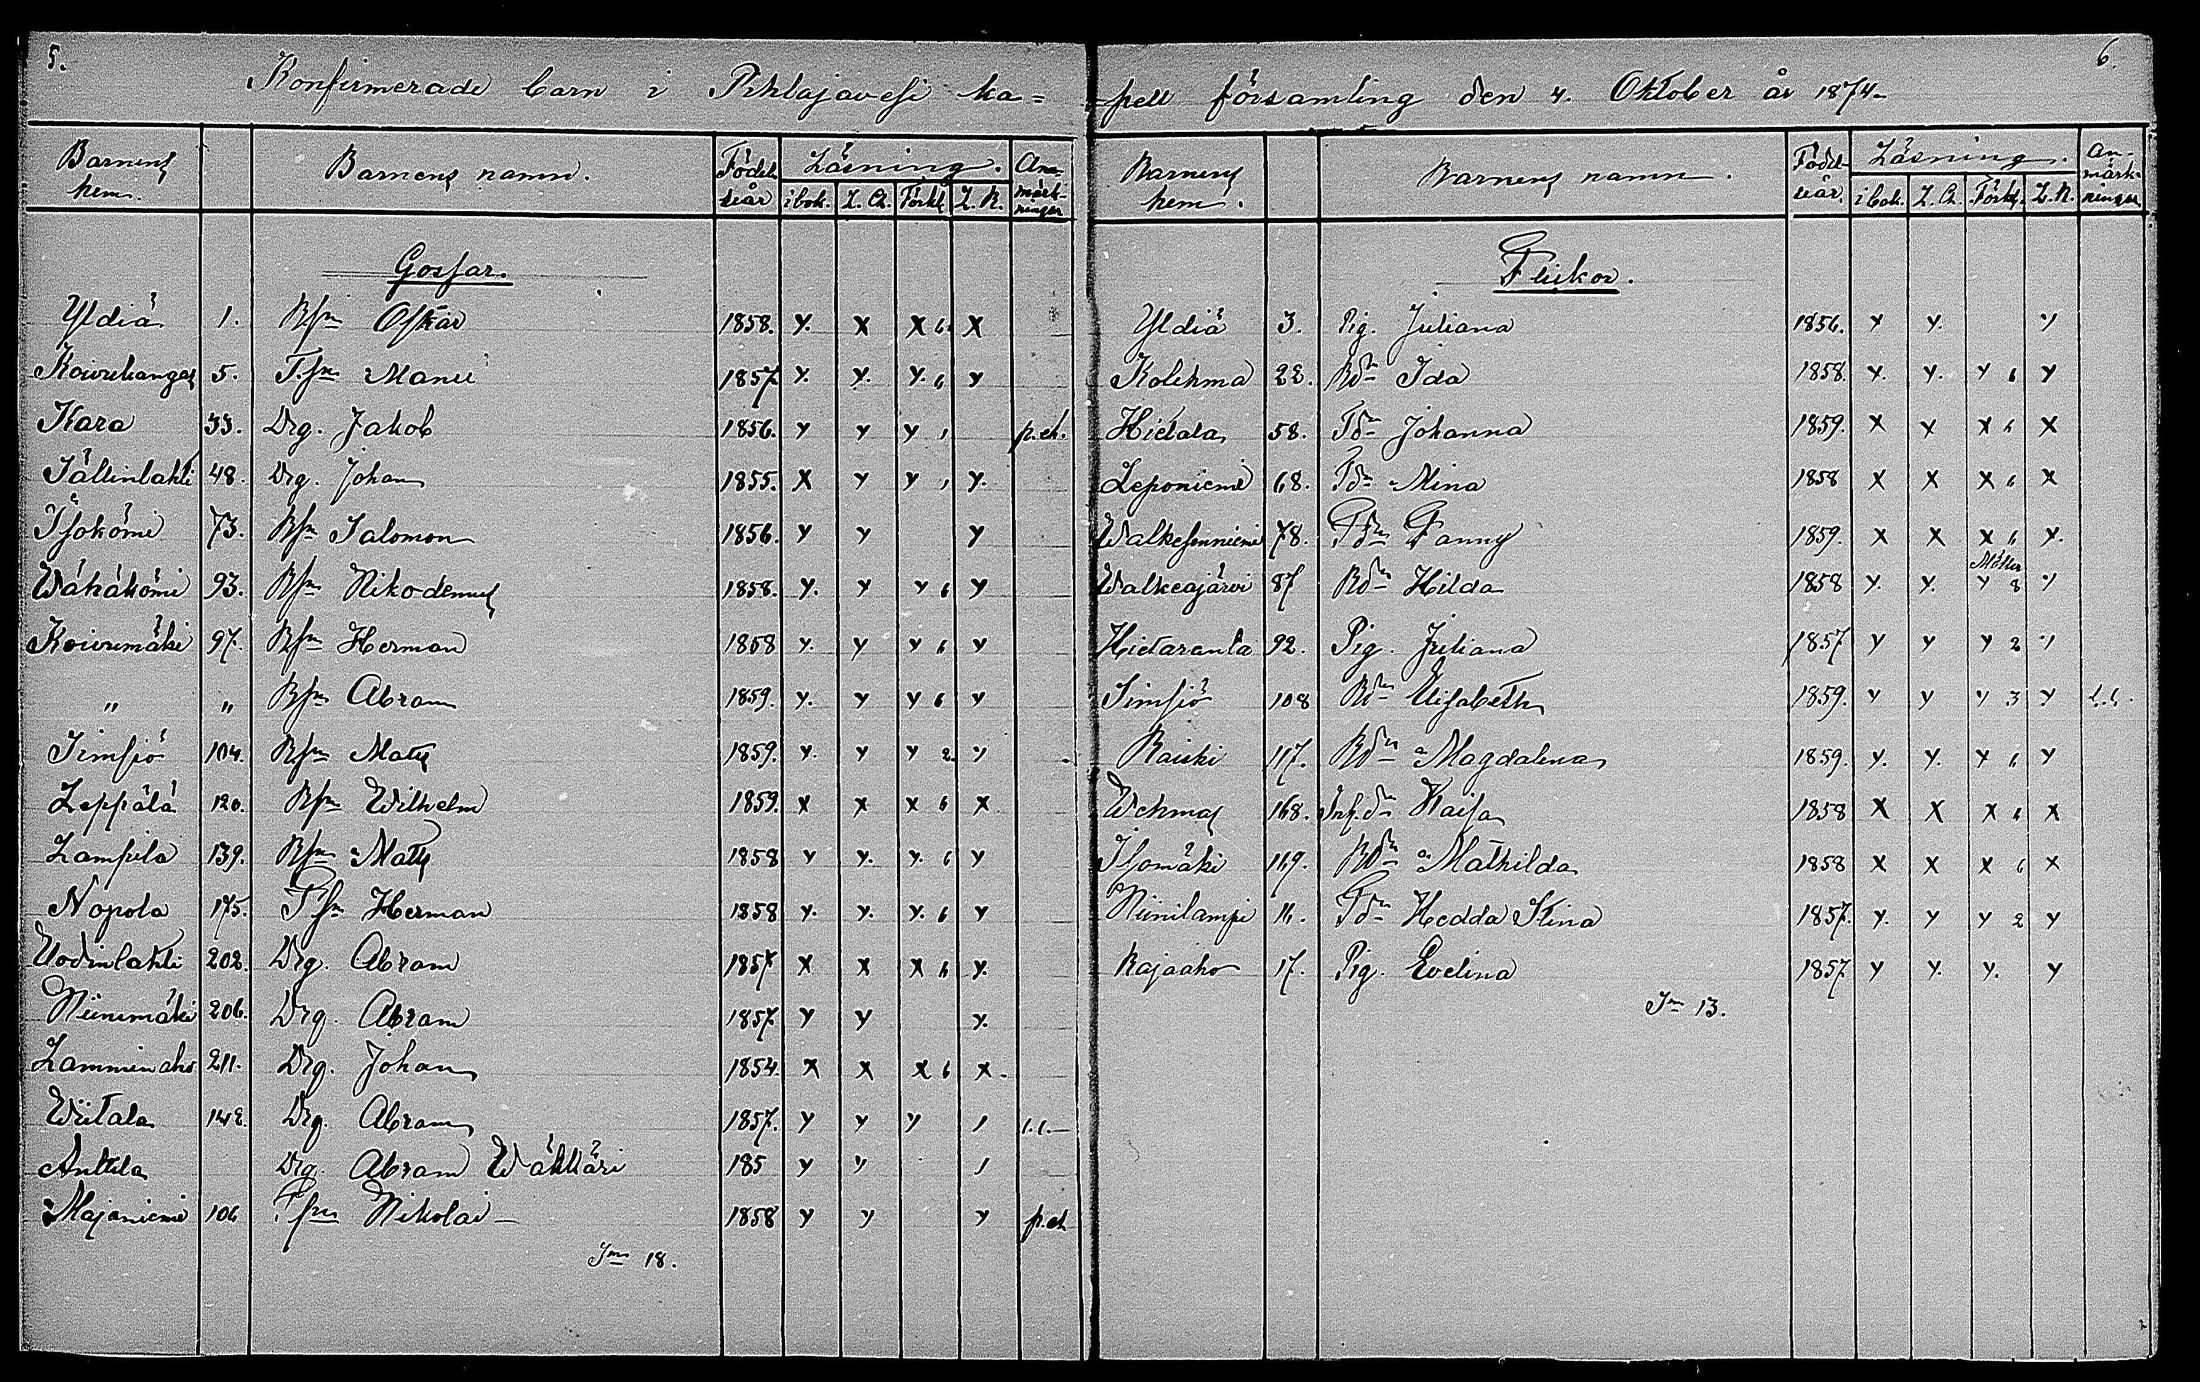 5.
Konfirmerade barn i Pihlajavesi ka=
Barnens hem. Barnens namn. Födelseår Läsning. Anmärkningar
i bok. L. Ch. Förkl. L. N.
Gossar.
Yldiä 1. Bsn Oskar 1858. y. x x 6. x
Koivukangas 5. T.sn Manu 1857. y. y. y. 6 y
Kara 33. Drg. Jakob 1856. y y y 1 p.ch.
Sällinlahti 48. Drg. Johan 1855. x y y 1 y.
Isokömi 73. Bsn Salomon 1856. y y y
Wähäkömi 93. Bsn Nikodemus 1858. y. y y 6 y
Koivumäki 97. Bsn Herman 1858 y. y y 6 y
" " Bsn Abram 1859. y. y y 6 y
Simsiö 104. Bsn Matts 1859. y. y y 2. y
Leppälä 120. Bsn Wilhelm 1859. x x x 6 x
Lampila 139. Bsn Matts 1858 y y. y. 6 y
Nopola 175. Tsn Herman 1858 y. y. y. 6 y
Uodinlahti 202. Drg. Abram 1857 x x x 6 y.
Niinimäki 206. Drg. Abram 1857 y y y.
Lamminaho 211. Drg. Johan 1854. x x x 6 x.
Wiitala 148. Drg. Abram 1857. y y y / l.l.
Anttila Drg. Abram Wäkkäri 185 y y /
Majaniemi 106 T.sn Nikolai 1858 y y y p.ch
Sm 18.
6.
pell församling den 4. Oktober år 1874.
Barnens hem. Barnens namn. Födelseår. Läsning. Anmärkningar
i bok. L. Ch. Förkl. L. N.
Flickor.
Yldiä 3. Pig. Juliana 1856. y y. y
Kolehma 22. Bdr Ida 1858. y. y. y 6 y
Hietala 58. Tdr Johanna 1859. x y x 6 x
Leponiemi 68. Tdr Mina 1858 x x x 6 x
Walkesmniemi 78. Tdr Fanny 1859. x x x 6 x.
Walkeajärvi 87 Bdr Hilda 1858 y. y. y 8 y
Hietaranta 92. Pig. Juliana 1857 y y y 2 y
Simsiö 108 Bdr Elisabeth 1859. y y y 3 y l.l.
Raiski 117. Bdr Magdalena 1859. y. y. y 6 y
Wehmas 168. Inh.dr Kaisa 1858 x x x 6 x
Isomäki 169. Bdr Mathilda 1858 x x x 6 x
Niinilampi 16. Tdr Hedda Stina 1857. y. y y 2 y
Rajaaho 17. Pig. Evelina 1857 y y. y. y
Sm 13.